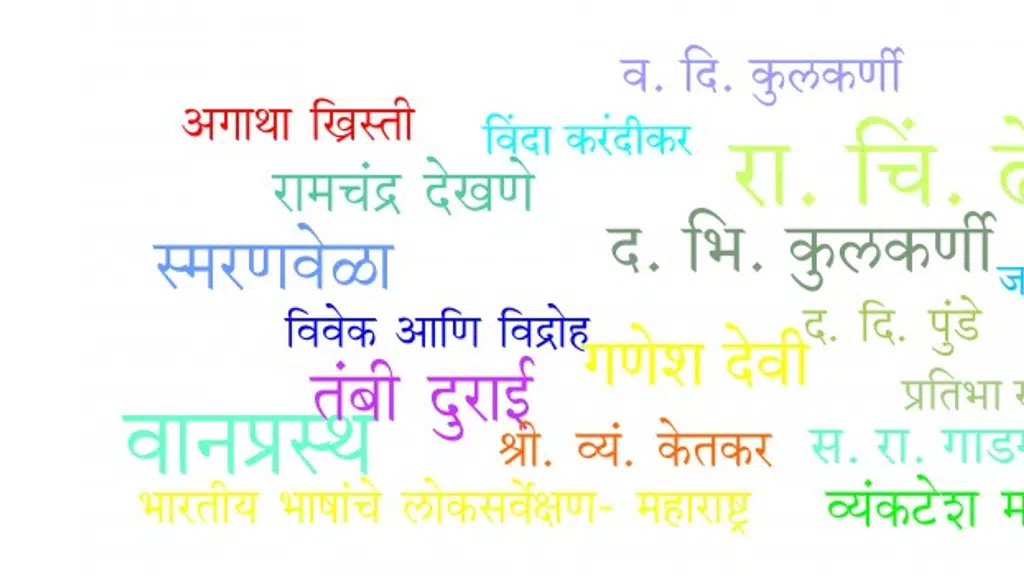 व. दि. कुलकर्णी
अगाथा ख्रिस्ती
विंदा करंदीकर
रा. चिं.
रामचंद्र देखणे
द. भि. कुलकर्णी
स्मरणवेळा
विवेक आणि विद्रोह
द. दि. पुंडे
गणेश देवी
तंबी दुराई
प्रतिभा
वानप्रस्थ
श्री. व्यं. केतकर
स. रा.
भारतीय भाषांचे लोकसर्वेक्षण- महाराष्ट्र
व्यंकटेश